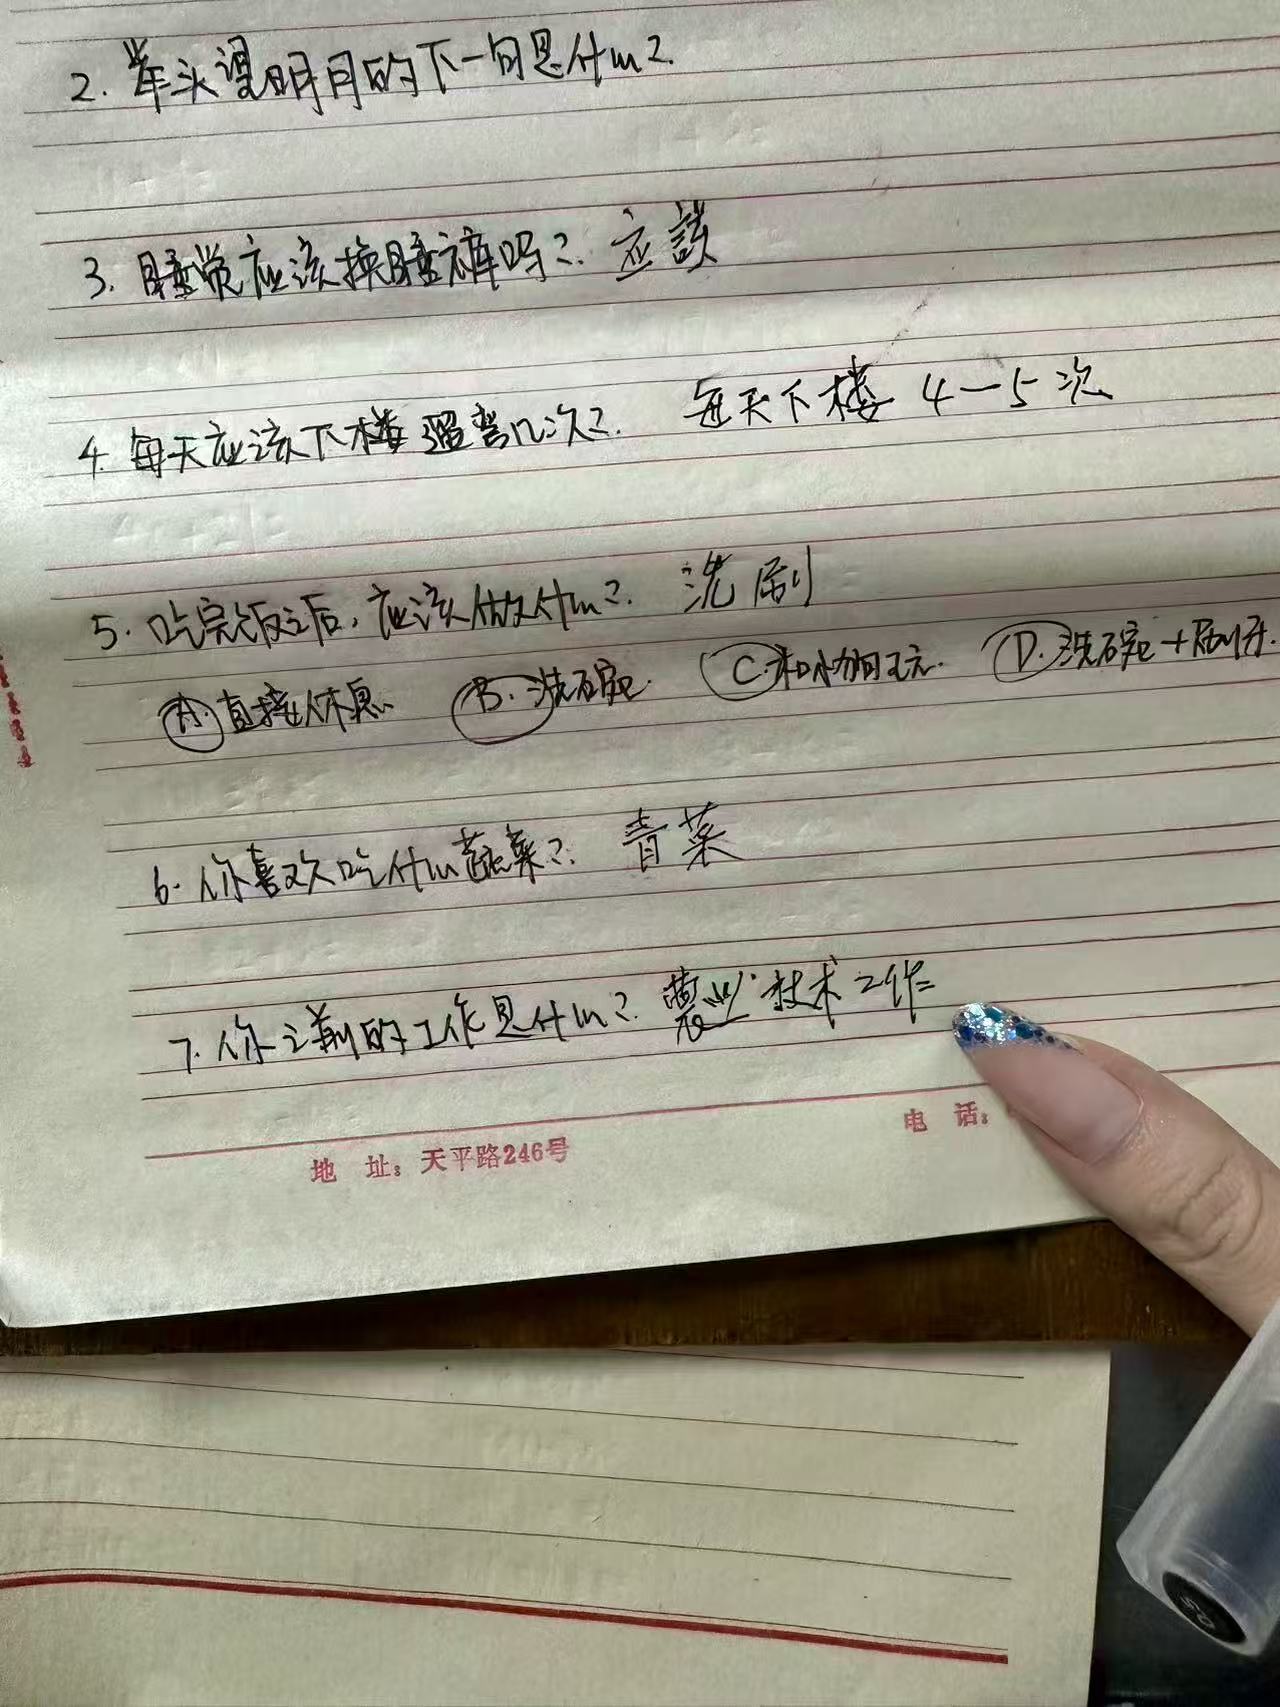 2. 举头望明月的下一句是什m?
3. 睡觉应该换睡裤吗? 应該
4. 每天应该下楼遛弯几次? 每天下楼 4-5次
5. 吃完饭之后,应该做什m? 洗刷
A. 直接休息 B. 洗碗 C. 和小加玩 D. 洗碗+刷牙.
6. 你喜欢吃什m蔬菜? 青菜
7. 你之前的工作是什m? 農业技术工作
地 址: 天平路246号
电 话: